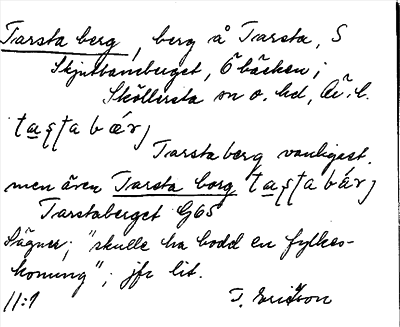 Tarsta berg, berg å Tarsta, S
Skjutbaneberget, Ö bäcken i
Sköllersta sn o. hd,
[ta̲ʂṭa bærj
Tarsta berg vanligast,
men även Tarsta borg [ta̲ʂṭa bárj
Tarstaberget G65
Sägner; "skulle ha bodd en fylkes-
konung"; jfr lit.
11:1 T. Ericsson